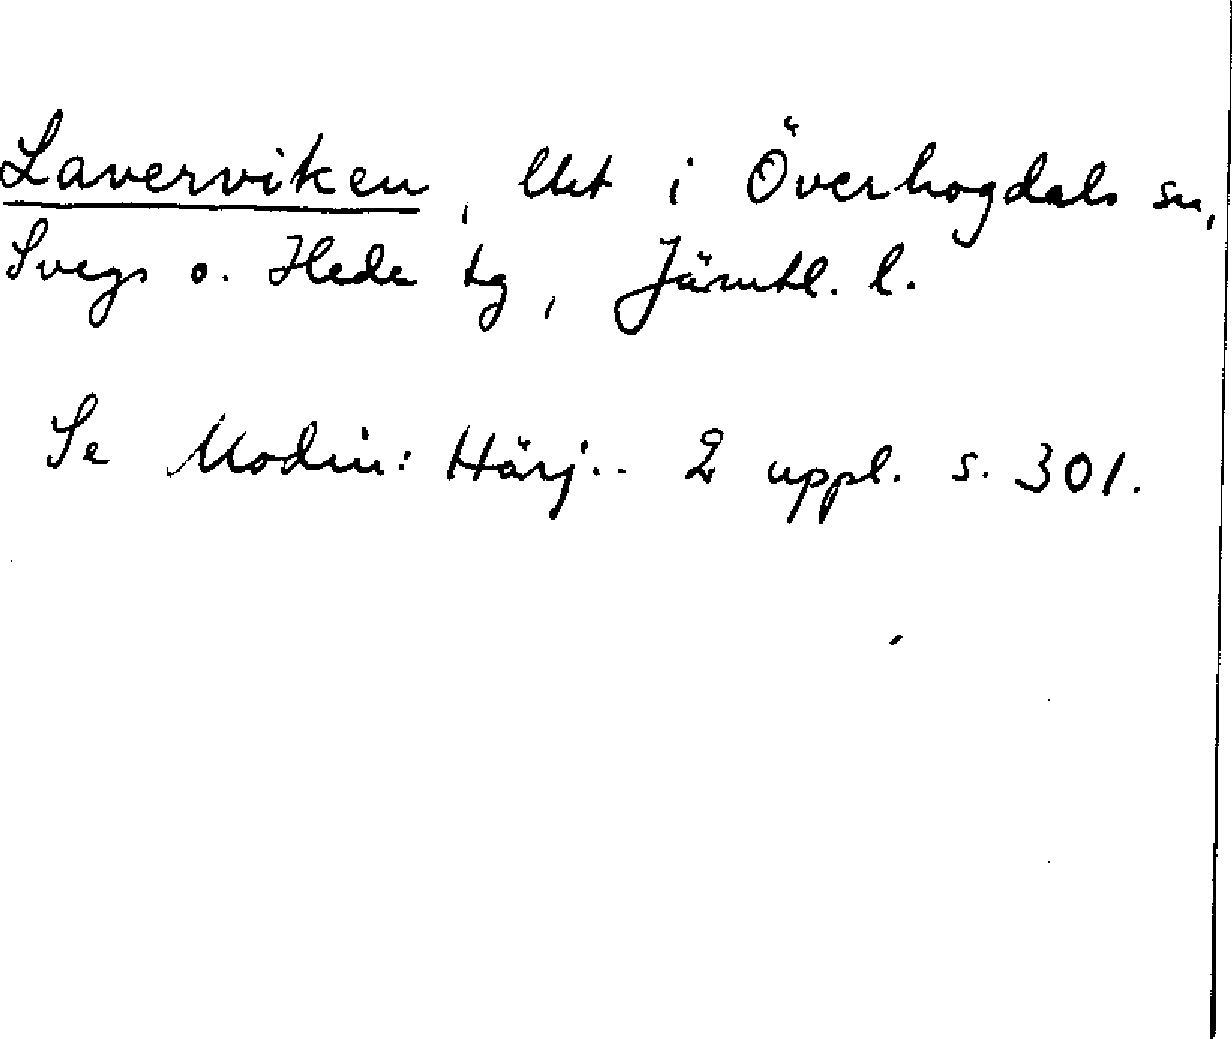 Laverviken, lht i Överhogdals sn,
Svegs o. Hede tg, Jämtl. l.
Se Modin: Härj.. 2 uppl. s. 301.